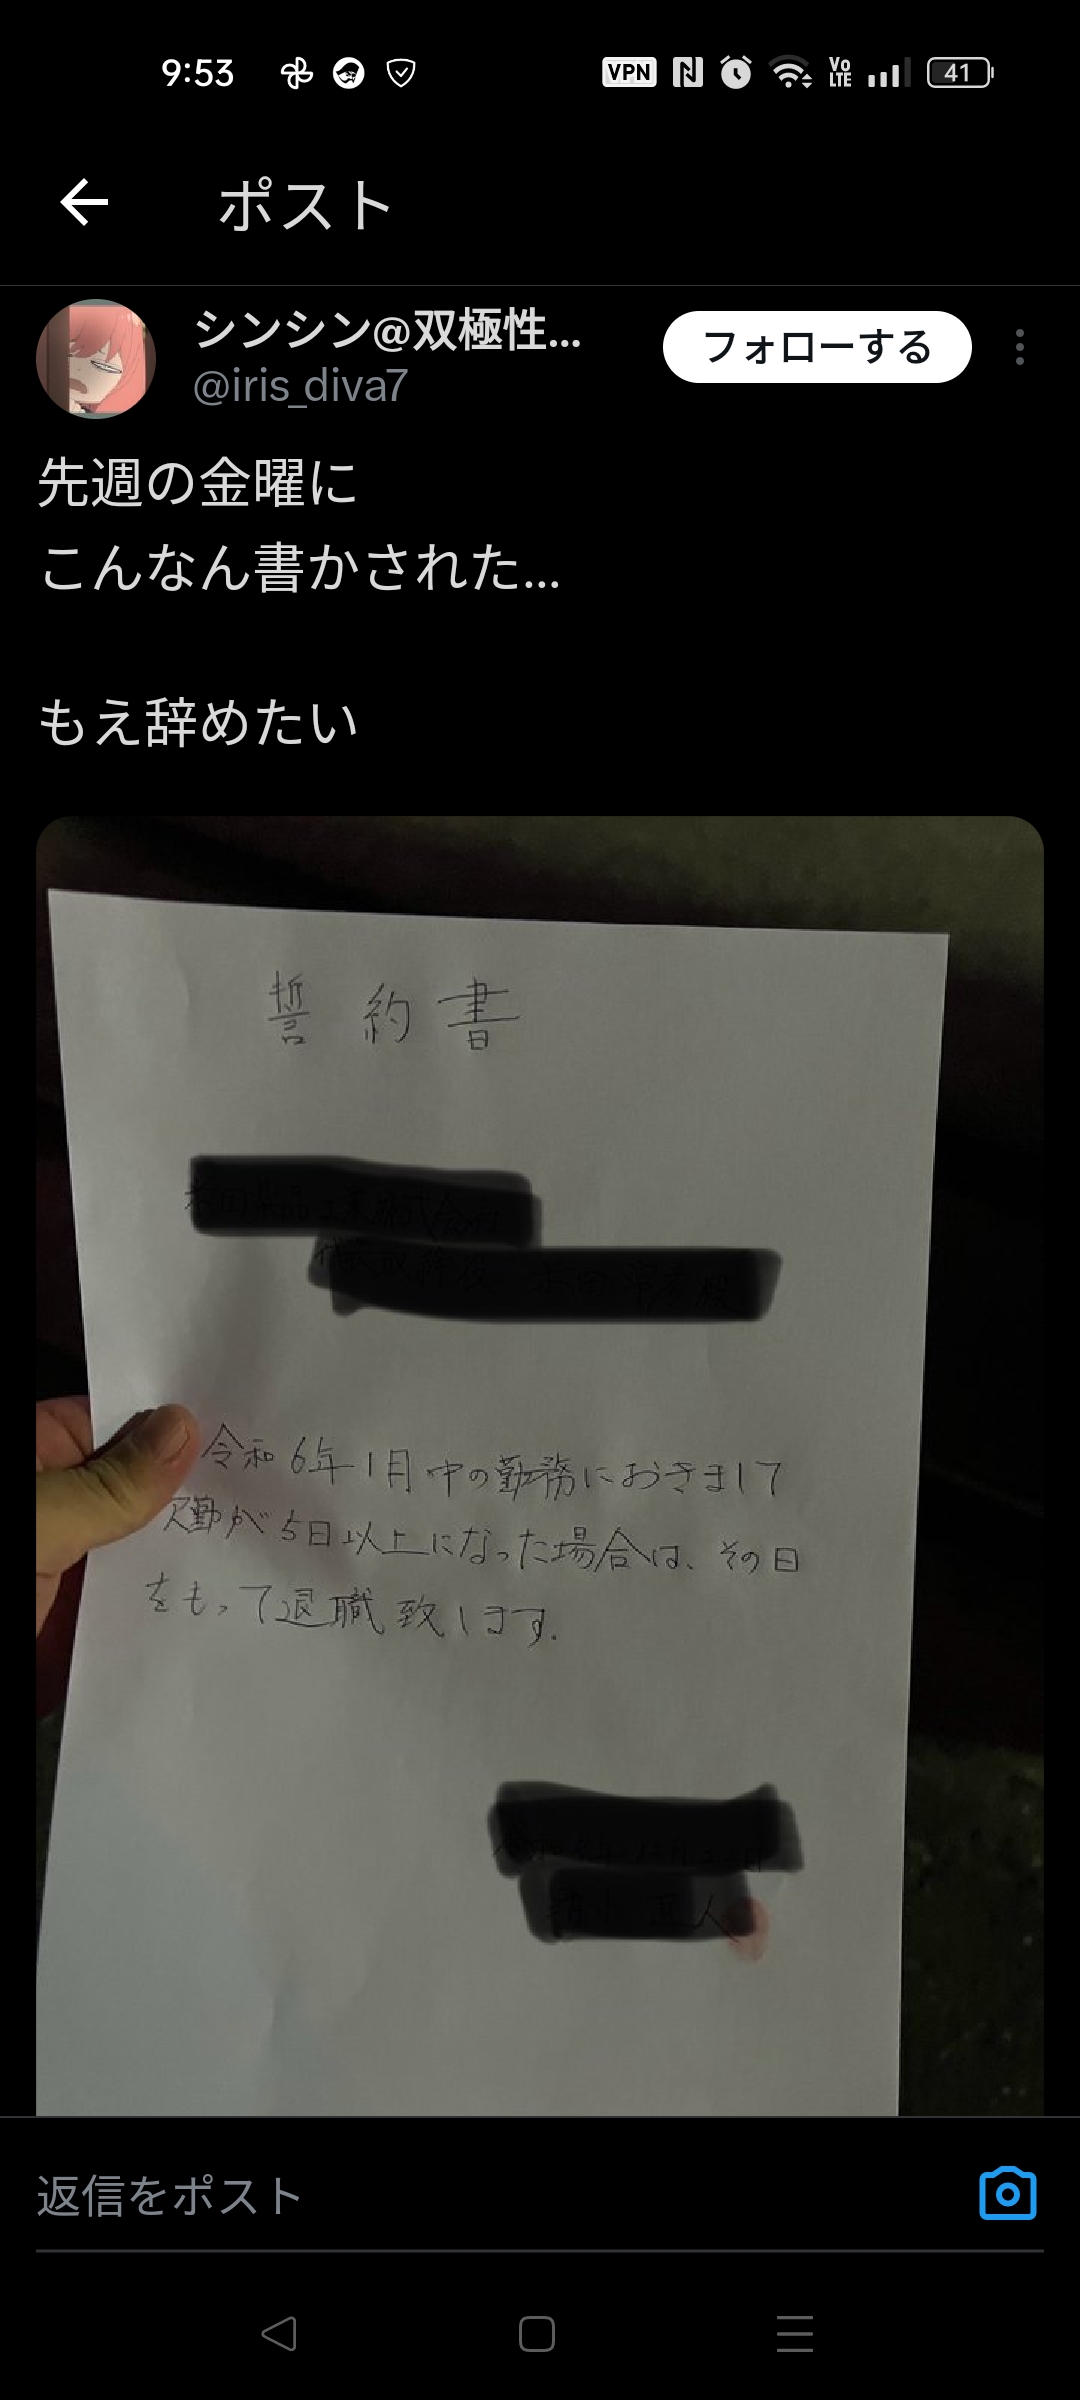 9:53
VPN
Vo
LTE
41
ポスト
シンシン@双極性...
フォローする
@iris_diva7
先週の金曜に
こんなん書かされた...
もえ辞めたい
誓約書
令和6年1月中の勤務におきまして
欠勤が5日以上になった場合は、その日
をもって退職致します.
返信をポスト